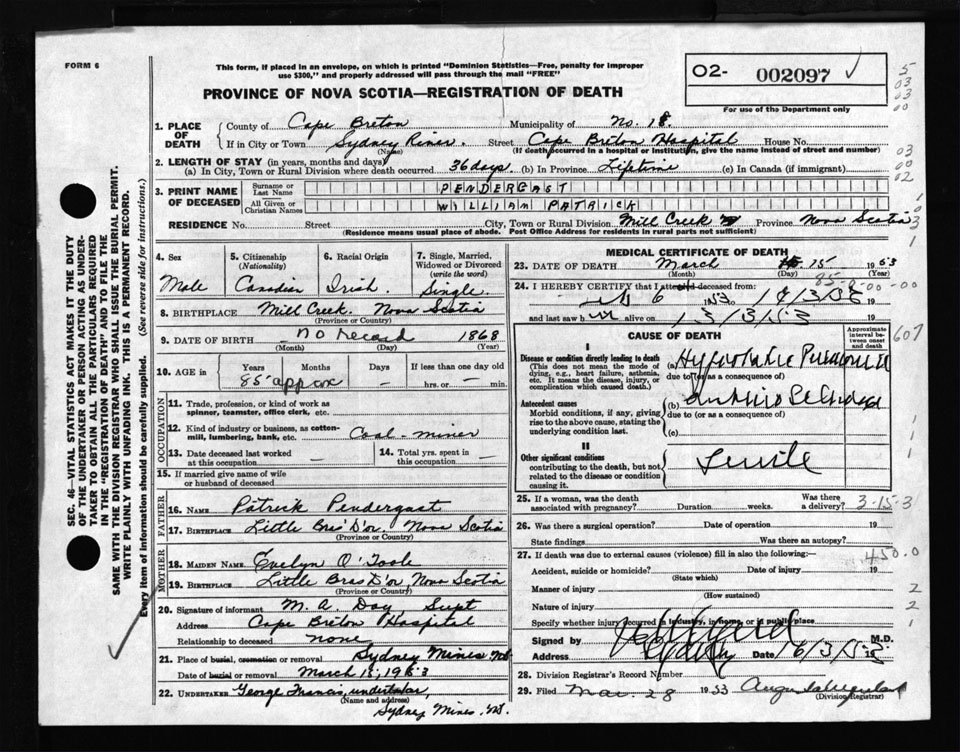 FORM 6
This form, if placed in an envelope, on which is printed "Dominion Statistics—Free, penalty for improper
use $300," and properly addressed will pass through the mail "FREE"
PROVINCE OF NOVA SCOTIA—REGISTRATION OF DEATH
O2- 002097
For use of the Department only
1. PLACE OF DEATH
County of Cape Breton Municipality of No. 18.
If in City or Town Sydney River Street Cape Breton Hospital House No.
(Name) (If death occurred in a hospital or institution, give the name instead of street and number)
2. LENGTH OF STAY (in years, months and days)
(a) In City, Town or Rural Division where death occurred 36 days. (b) In Province Lifetime (c) In Canada (if immigrant)
3. PRINT NAME OF DECEASED
Surname or Last Name PENDERGAST
All Given or Christian Names WILLIAM PATRICK
RESIDENCE No. Street City, Town or Rural Division Mill Creek Province Nova Scotia
(Residence means usual place of abode. Post Office Address for residents in rural parts not sufficient)
4. Sex Male
5. Citizenship (Nationality) Canadian
6. Racial Origin Irish
7. Single, Married, Widowed or Divorced (write the word) Single
8. BIRTHPLACE Mill Creek. Nova Scotia
(Province or Country)
9. DATE OF BIRTH no record 1868
(Month) (Day) (Year)
10. AGE in Years Months Days If less than one day old
85 approx — — hrs. or — min.
OCCUPATION
11. Trade, profession, or kind of work as spinner, teamster, office clerk, etc.
12. Kind of industry or business, as cotton-mill, lumbering, bank, etc. Coal-miner
13. Date deceased last worked at this occupation —
14. Total yrs. spent in this occupation —
15. If married give name of wife or husband of deceased
FATHER
16. Name Patrick Pendergast
17. Birthplace Little Bras D'or Nova Scotia
(Province or Country)
MOTHER
18. Maiden Name Evelyn O'Toole
19. Birthplace Little Bras D'or Nova Scotia
(Province or Country)
20. Signature of informant M. A. Day, Supt
Address Cape Breton Hospital
Relationship to deceased none
21. Place of burial, cremation or removal Sydney Mines NS
Date of burial or removal March 15, 1953
22. UNDERTAKER George Francis, undertaker,
(Name and address)
Sydney Mines, NS.
MEDICAL CERTIFICATE OF DEATH
23. DATE OF DEATH March 15 1953
(Month) (Day) (Year)
24. I HEREBY CERTIFY that I attended deceased from:
6 1953 to 14/3/53 19
and last saw him alive on 13/3/53 19
CAUSE OF DEATH
Approximate interval between onset and death
I
Disease or condition directly leading to death
(This does not mean the mode of dying, e.g., heart failure, asthenia, etc. It means the disease, injury, or complication which caused death.)
(a) Hypostatic Pneumonia
due to (or as a consequence of)
Antecedent causes
Morbid conditions, if any, giving rise to the above cause, stating the underlying condition last.
(b) Arterio Sclerosis
due to (or as a consequence of)
(c)
II
Other significant conditions
contributing to the death, but not related to the disease or condition causing it.
Senile
25. If a woman, was the death associated with pregnancy? Duration weeks. Was there a delivery?
3-15-3
26. Was there a surgical operation? Date of operation 19
State findings Was there an autopsy?
27. If death was due to external causes (violence) fill in also the following:—
450.0
Accident, suicide or homicide? Date of injury 19
(State which)
Manner of injury
(How sustained)
Nature of injury
Specify whether injury occurred in industry, in home, or in public place
Signed by M.D.
Address Sydney Date 16/3/53
28. Division Registrar's Record Number
29. Filed Mar. 28 1953
(Division Registrar)
SEC. 46—VITAL STATISTICS ACT MAKES IT THE DUTY
OF THE UNDERTAKER OR PERSON ACTING AS UNDER-
TAKER TO OBTAIN ALL THE PARTICULARS REQUIRED
IN THE "REGISTRATION OF DEATH" AND TO FILE THE
SAME WITH THE DIVISION REGISTRAR WHO SHALL ISSUE THE BURIAL PERMIT.
WRITE PLAINLY WITH UNFADING INK. THIS IS A PERMANENT RECORD.
Every item of information should be carefully supplied. (See reverse side for instructions.)
5
03
03
00
03
00
02
607
2
2
1